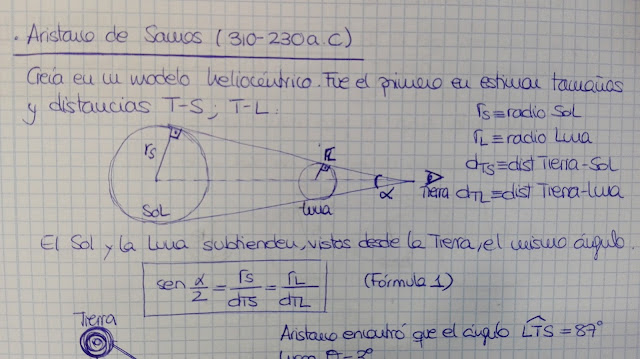 · Aristarco de Samos (310-230 a.C)
Creía en un modelo heliocéntrico. Fue el primero en estimar tamaños
y distancias T-S; T-L.
rs≡radio Sol
rL≡radio Luna
dTS≡dist Tierra-Sol
dTL≡dist Tierra-Luna
rs
rL
α
Sol
Luna
Tierra
El Sol y la Luna subtienden, vistos desde la Tierra, el mismo ángulo.
sen α/2 = rs/dTS = rL/dTL (Fórmula 1)
Tierra
Aristarco encontró que el ángulo LTS = 87°